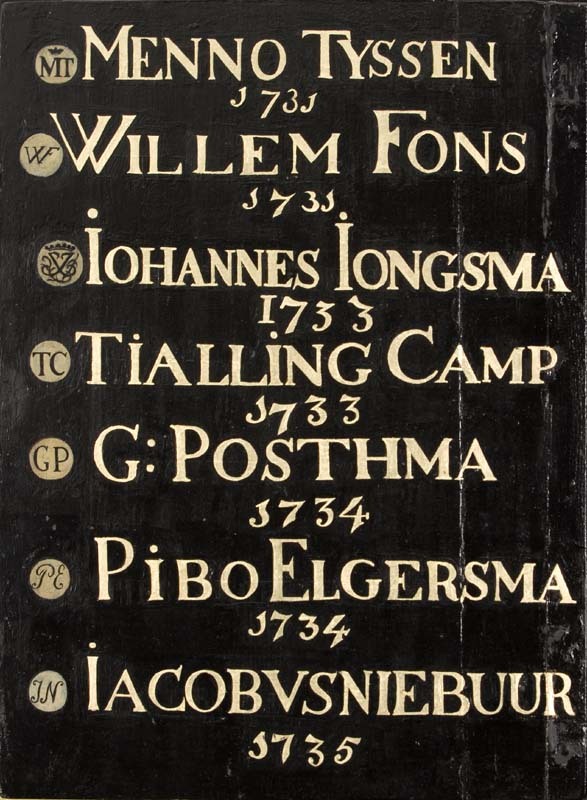 MT MENNO TYSSEN
1731
WF WILLEM FONS
1731
IOHANNES IONGSMA
1733
TC TIALLING CAMP
1733
GP G: POSTHMA
1734
PE PIBO ELGERSMA
1734
IN IACOBVSNIEBUUR
1735